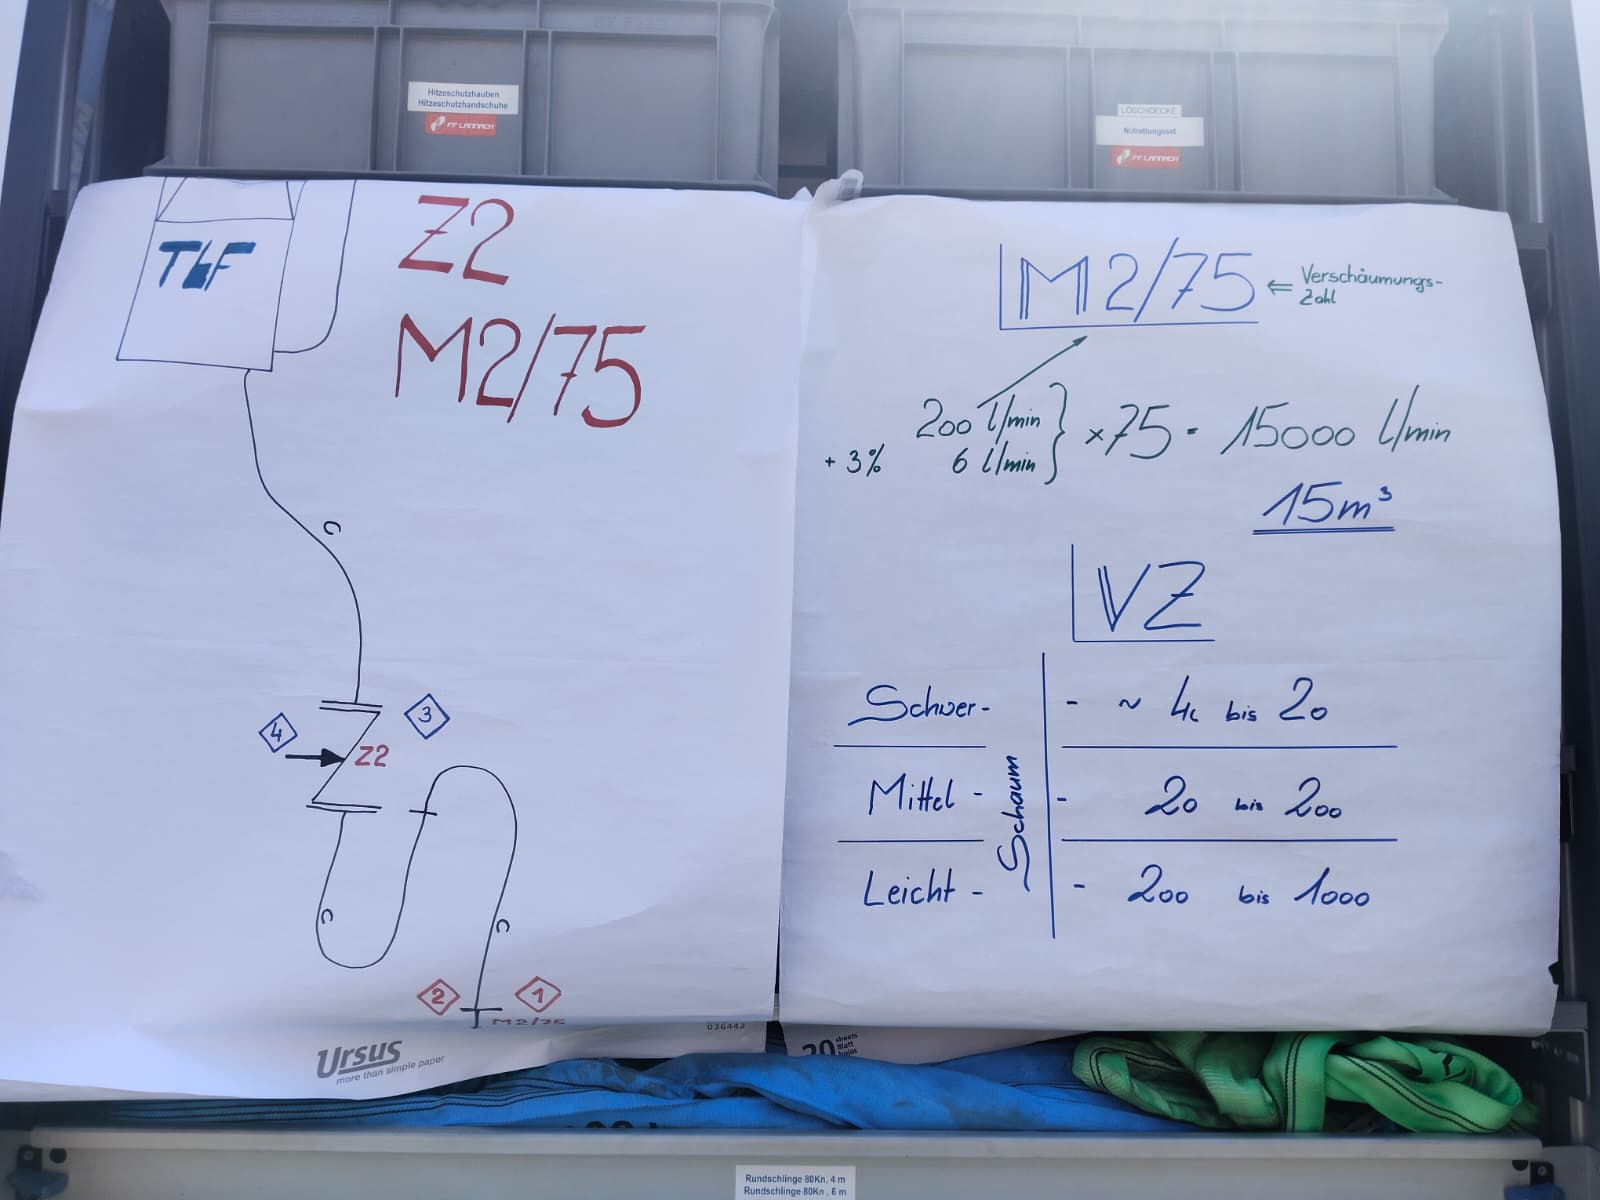 Hitzeschutzhauben
Hitzeschutzhandschuhe
FF LANNACH
LÖSCHDECKE
Notrettungsset
FF LANNACH
TLF
Z2
M2/75
C
4
3
Z2
C
C
2
1
M2/75
Ursus
more than simple paper
036442
M2/75 ⇐ Verschäumungs-
Zahl
200 l/min
+ 3% 6 l/min } x 75 = 15000 l/min
15m³
VZ
Schwer- - ~ 4 bis 20
Mittel - - 20 bis 200
Leicht - - 200 bis 1000
Schaum
20 sheets
Blatt
Rundschlinge 80Kn, 4 m
Rundschlinge 80Kn, 6 m